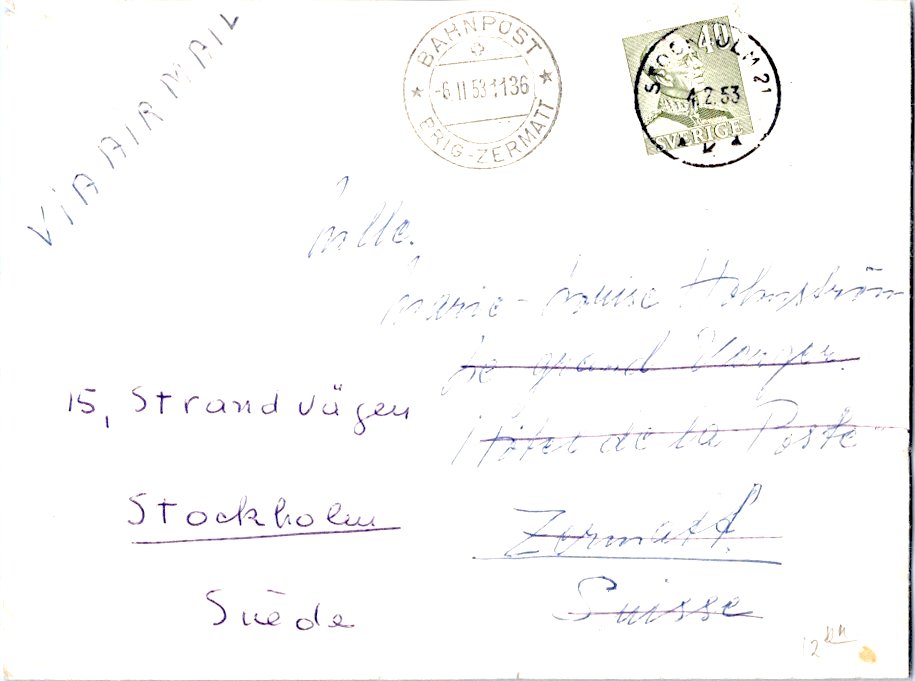 VIA AIR MAIL
BAHNPOST
-6.II 53-1136
BRIG-ZERMATT
40
STOCKHOLM 21
4.2.53
SVERIGE
Mlle.
Marie-Louise Holmström
Le grand
Hôtel de la Poste
Zermatt.
Suisse
15, Strandvägen
Stockholm
Suède
12